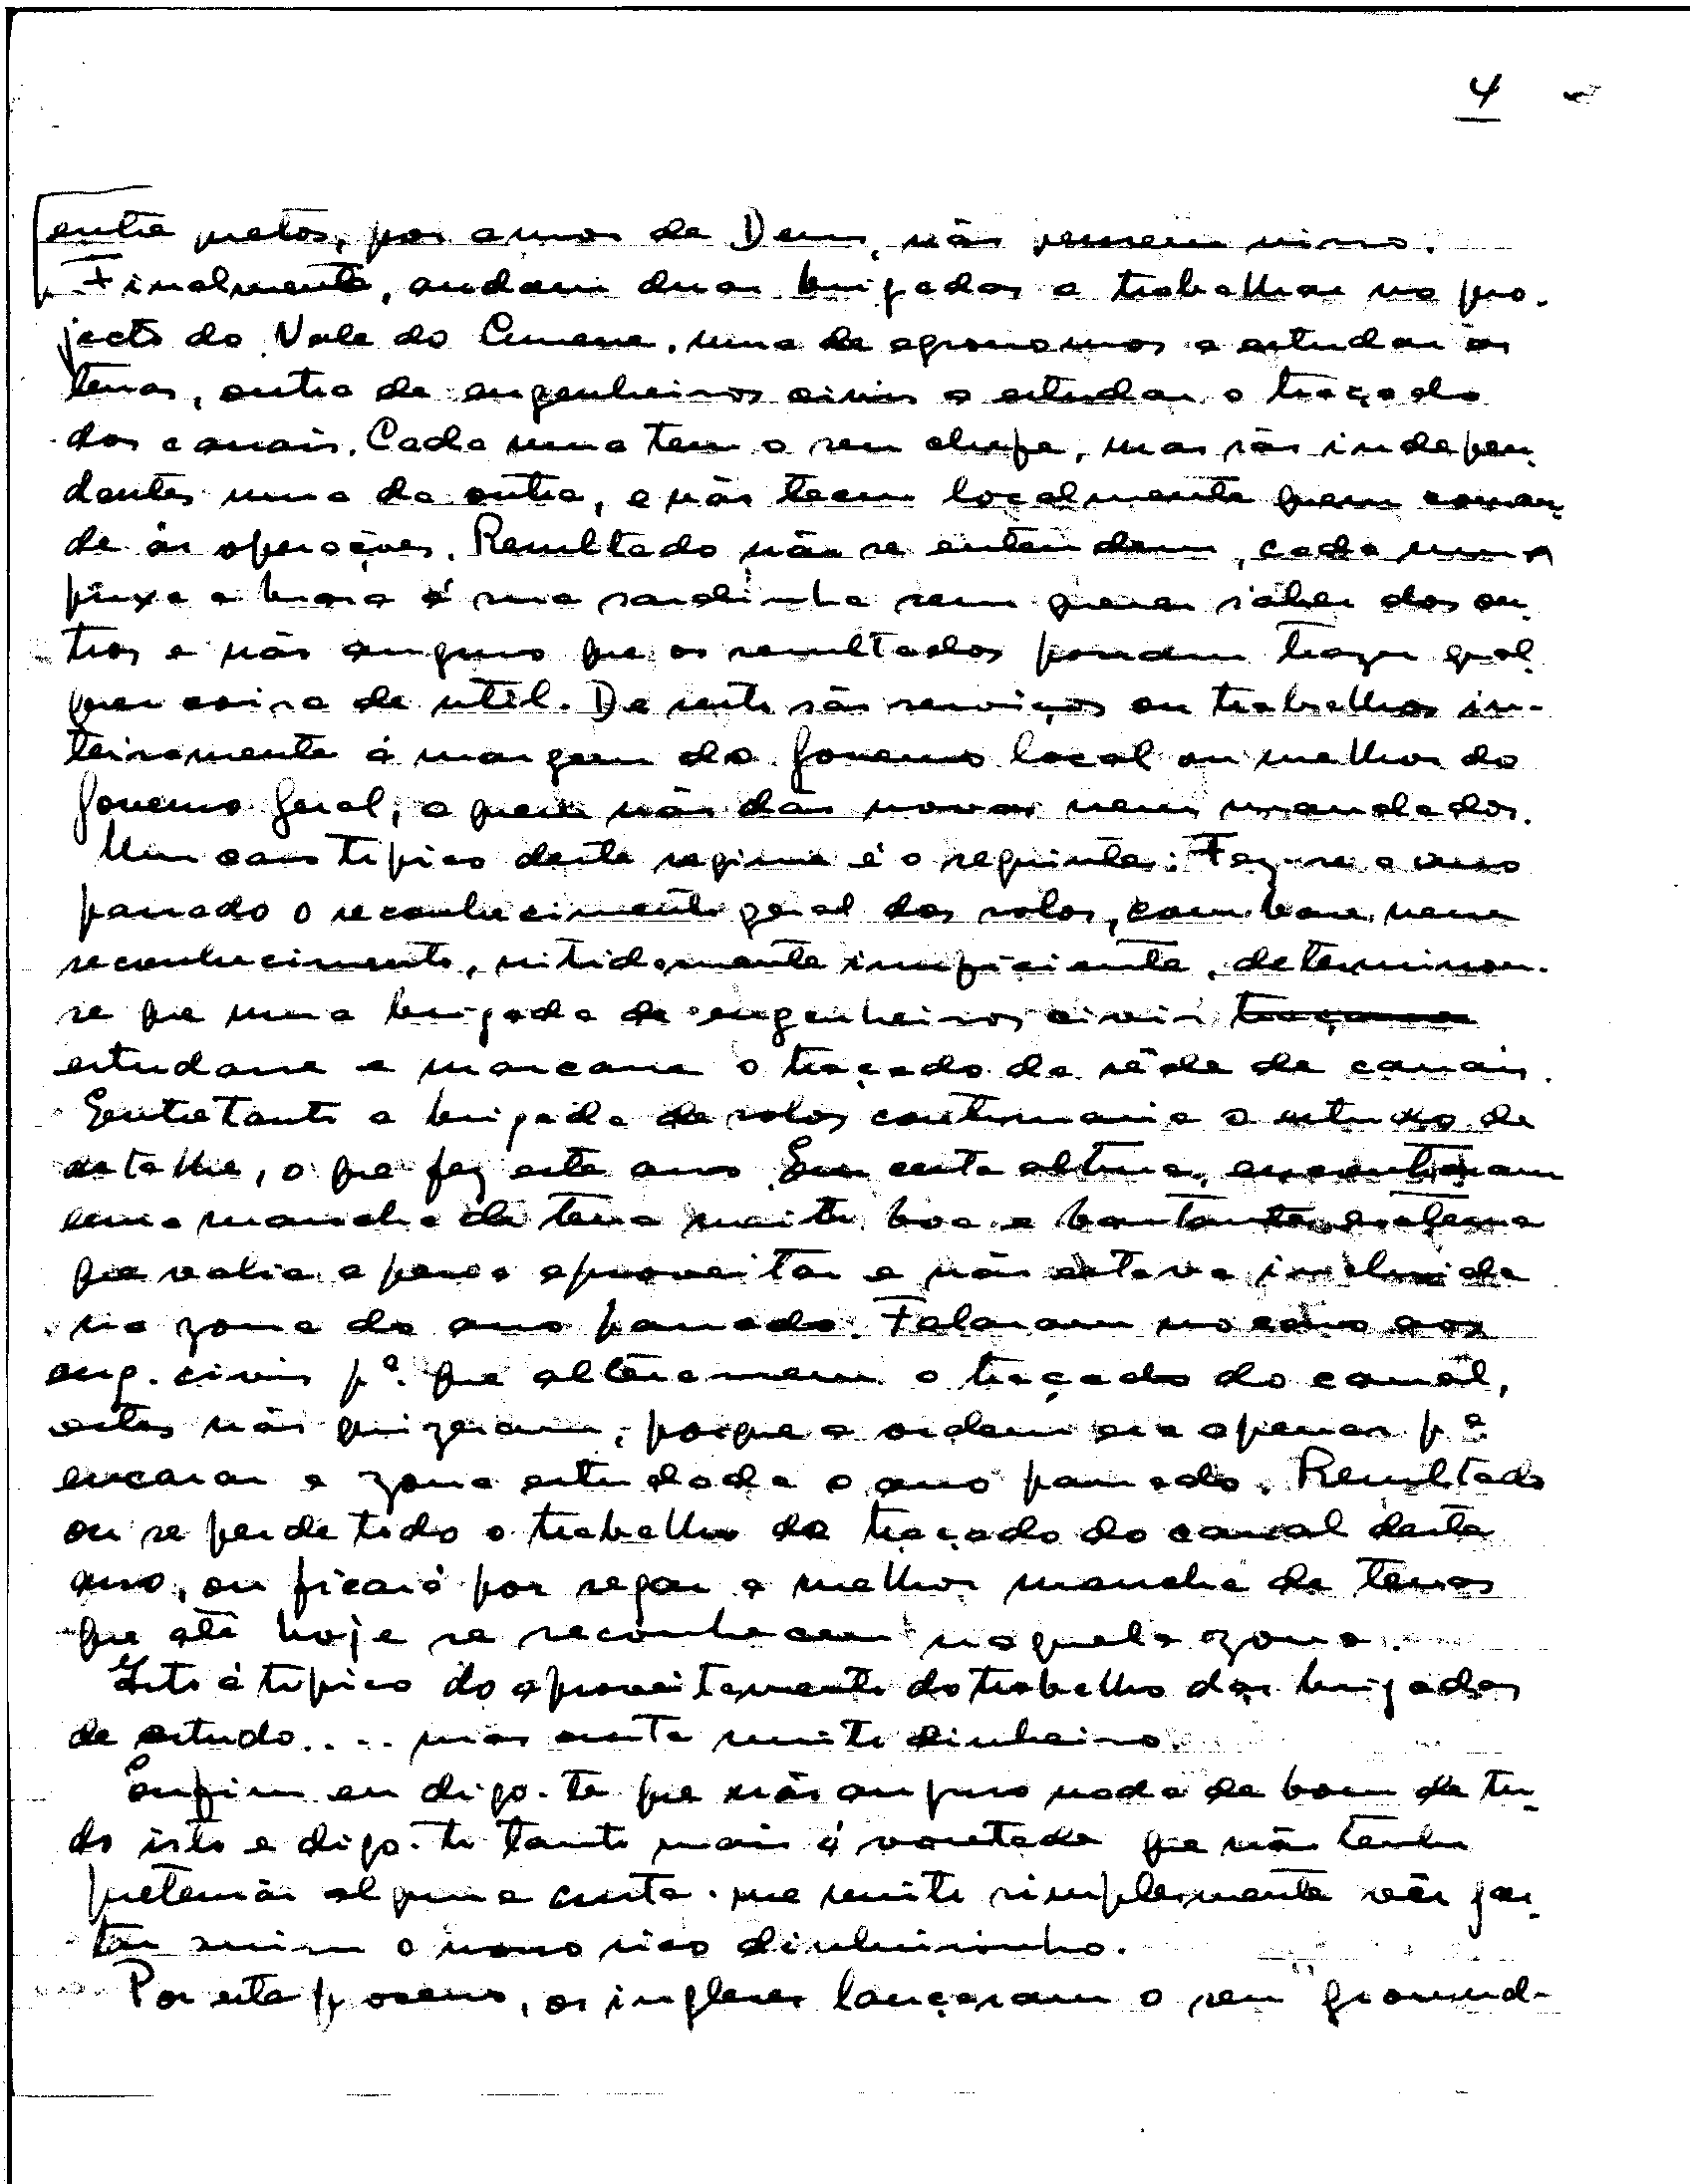 4
entre pretos, por amor de Deus, não pensem nisso.
Finalmente, andam duas brigadas a trabalhar no pro-
jecto do Vale do Cunene, uma de agronomos a estudar as
terras, outra de engenheiros civis a estudar o traçado
dos canais. Cada uma tem o seu chefe, mas são indepen-
dentes uma da outra, e não teem localmente quem coman-
de as operações. Resultado não se entendem, cada uma
puxa a brasa á sua sardinha sem querer saber dos ou-
tros e não auguro que os resultados possam trazer qual-
quer coisa de util. De resto são serviços ou trabalhos in-
teiramente á margem do governo local ou melhor do
governo geral, a quem não dão novas nem mandados.
Um caso tipico deste regime é o seguinte: Fez-se o ano
passado o reconhecimento geral dos solos, com base nesse
reconhecimento, nitidamente insuficiente, determinou-
se que uma brigada de engenheiros civis
estudasse e marcasse o traçado da rêde de canais.
Entretanto a brigada de solos continuaria o estudo de
detalhe, o que fez este ano. Em certa altura, encontraram
uma mancha de terra muito boa e bastante extensa
que valia a pena aproveitar e não estava incluida
na zona do ano passado. Falaram no caso aos
eng. civis pª. que alterassem o traçado do canal,
estes não quizeram, porque a ordem era apenas pª
encarar a zona estudada o ano passado. Resultado
ou se perde todo o trabalho do traçado do canal deste
ano, ou ficará por regar a melhor mancha de terras
que até hoje se reconheceu naquela zona.
Isto é tipico do aproveitamento do trabalho das brigadas
de estudo.... mas custa muito dinheiro.
Emfim eu digo-te que não auguro nada de bom de tu-
do isto e digo-to tanto mais á vontade que não tenho
pretensão alguma custa-me muito simplesmente vêr gas-
tar assim o nosso rico dinheirinho.
Por este processo, os ingleses lançaram o seu "ground-